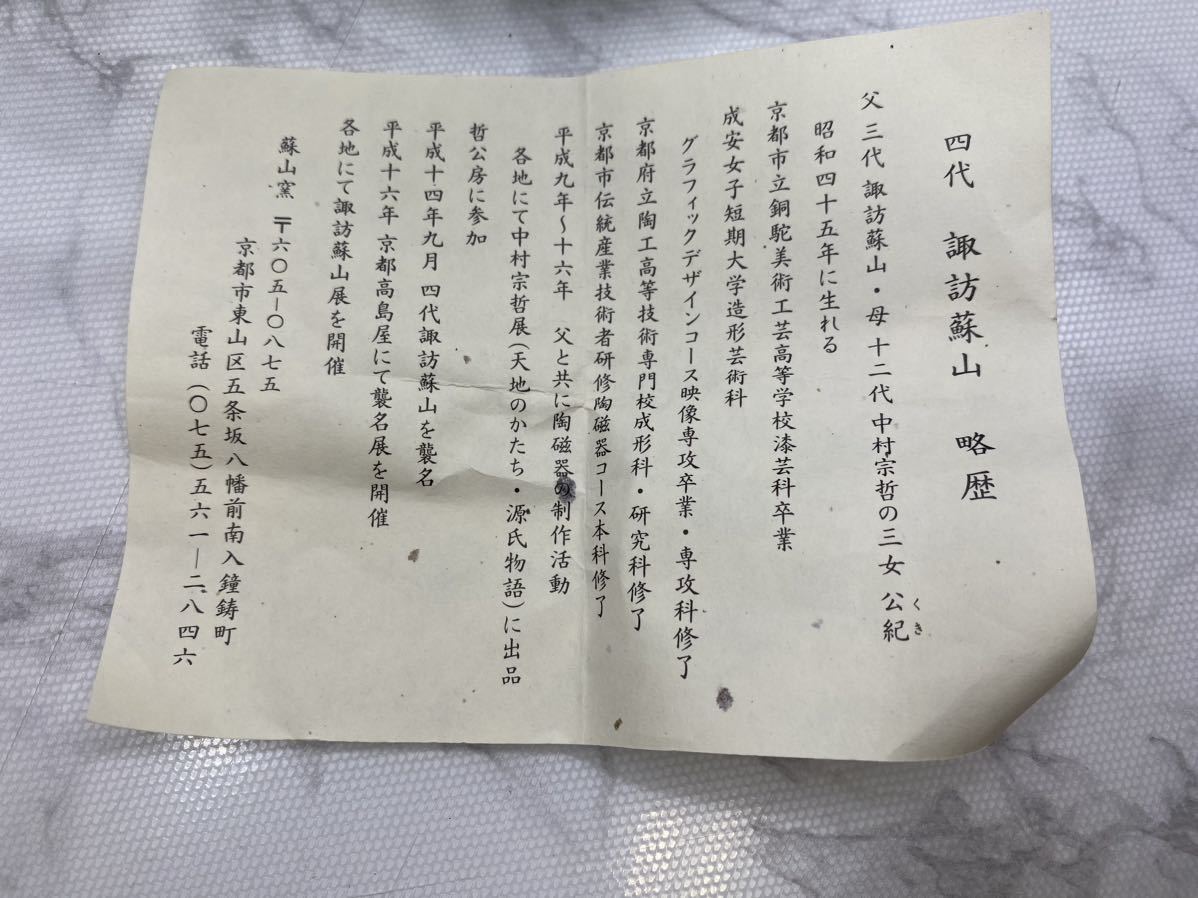 四代 諏訪蘇山 略歴
父 三代 諏訪蘇山・母 十二代 中村宗哲の三女 公紀
くき
昭和四十五年に生れる
京都市立銅駝美術工芸高等学校漆芸科卒業
成安女子短期大学造形芸術科
グラフィックデザインコース映像専攻卒業・専攻科修了
京都府立陶工高等技術専門校成形科・研究科修了
京都市伝統産業技術者研修陶磁器コース本科修了
平成九年～十六年 父と共に陶磁器の制作活動
各地にて中村宗哲展(天地のかたち・源氏物語)に出品
哲公房に参加
平成十四年九月 四代諏訪蘇山を襲名
平成十六年 京都高島屋にて襲名展を開催
各地にて諏訪蘇山展を開催
蘇山窯 〒六〇五-〇八七五
京都市東山区五条坂八幡前南入鐘鋳町
電話(〇七五)五六一―二八四六